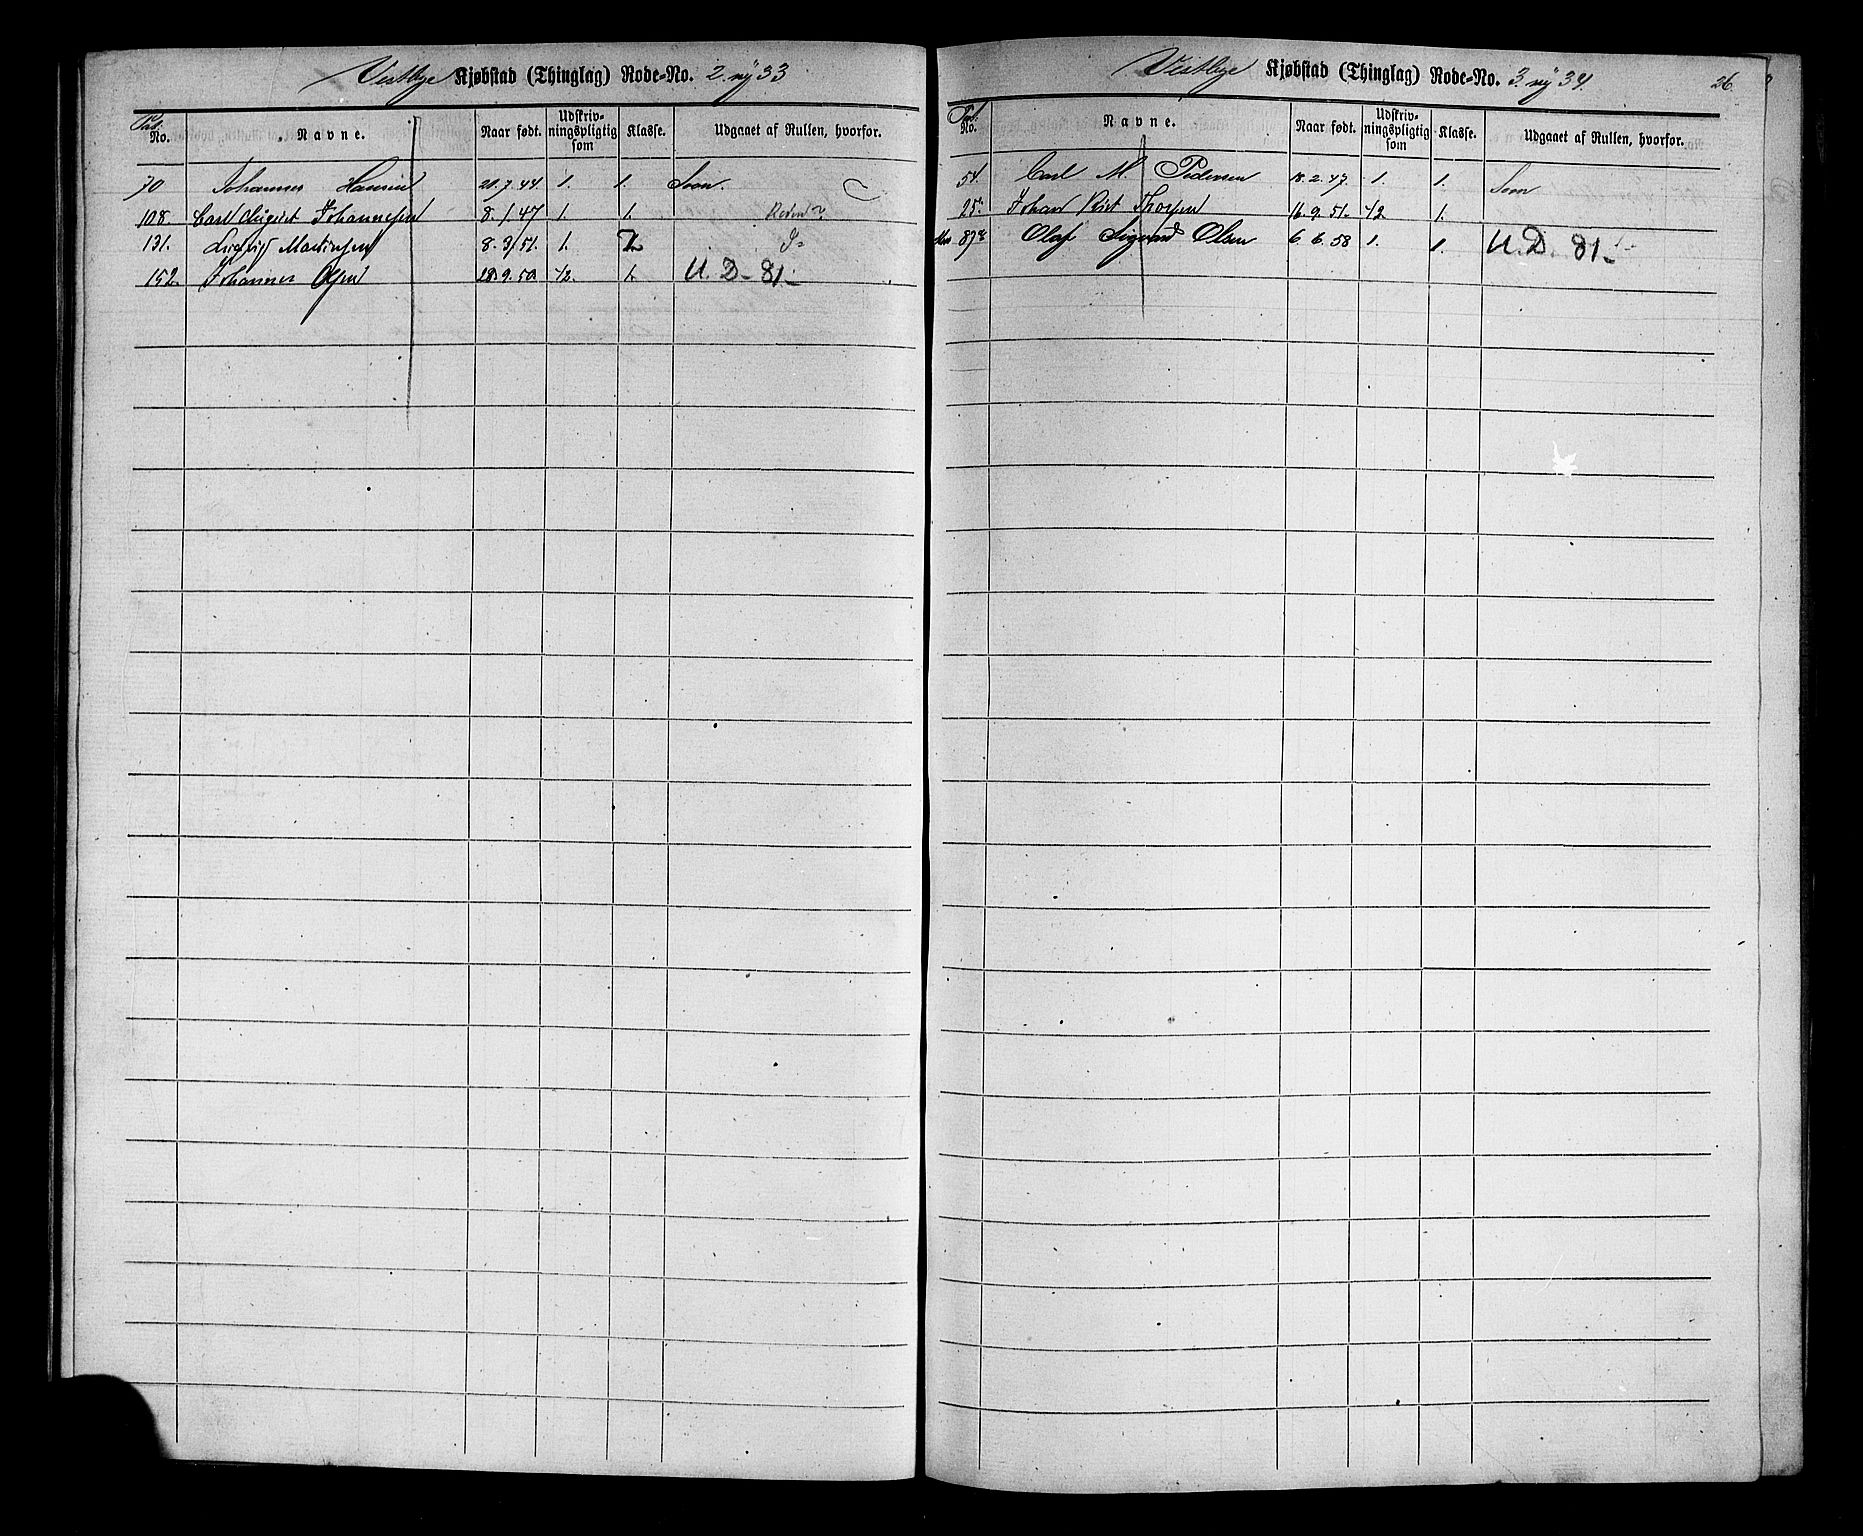 Vestbye Kjøbstad (Thinglag) Rode-No. 2. ny 33
No. Navne. Naar født. Udskrivningspligtig som Klasse. Udgaaet af Rullen, hvorfor.
70 Johannes Hansen 20.7.44 1. 1. Soon.
108. Carl August Johannesen 8.1.47 1. 1.
131. Ludvig Martinsen 8.3.51. 1.
152. Johannes Olsen 28.9.50 1/2. 1. U. D. 81.
Vestbye Kjøbstad (Thinglag) Rode-No. 3. ny 34. 26.
No. Navne. Naar født. Udskrivningspligtig som Klasse. Udgaaet af Rullen, hvorfor.
54. Carl M. Pedersen 18.2.47. 1. 1. Soon
25. Johan 16.9.51. 1/2. 1.
87 Olaf Sigvard Olsen 6.6.58 1. 1. U. D. 81.